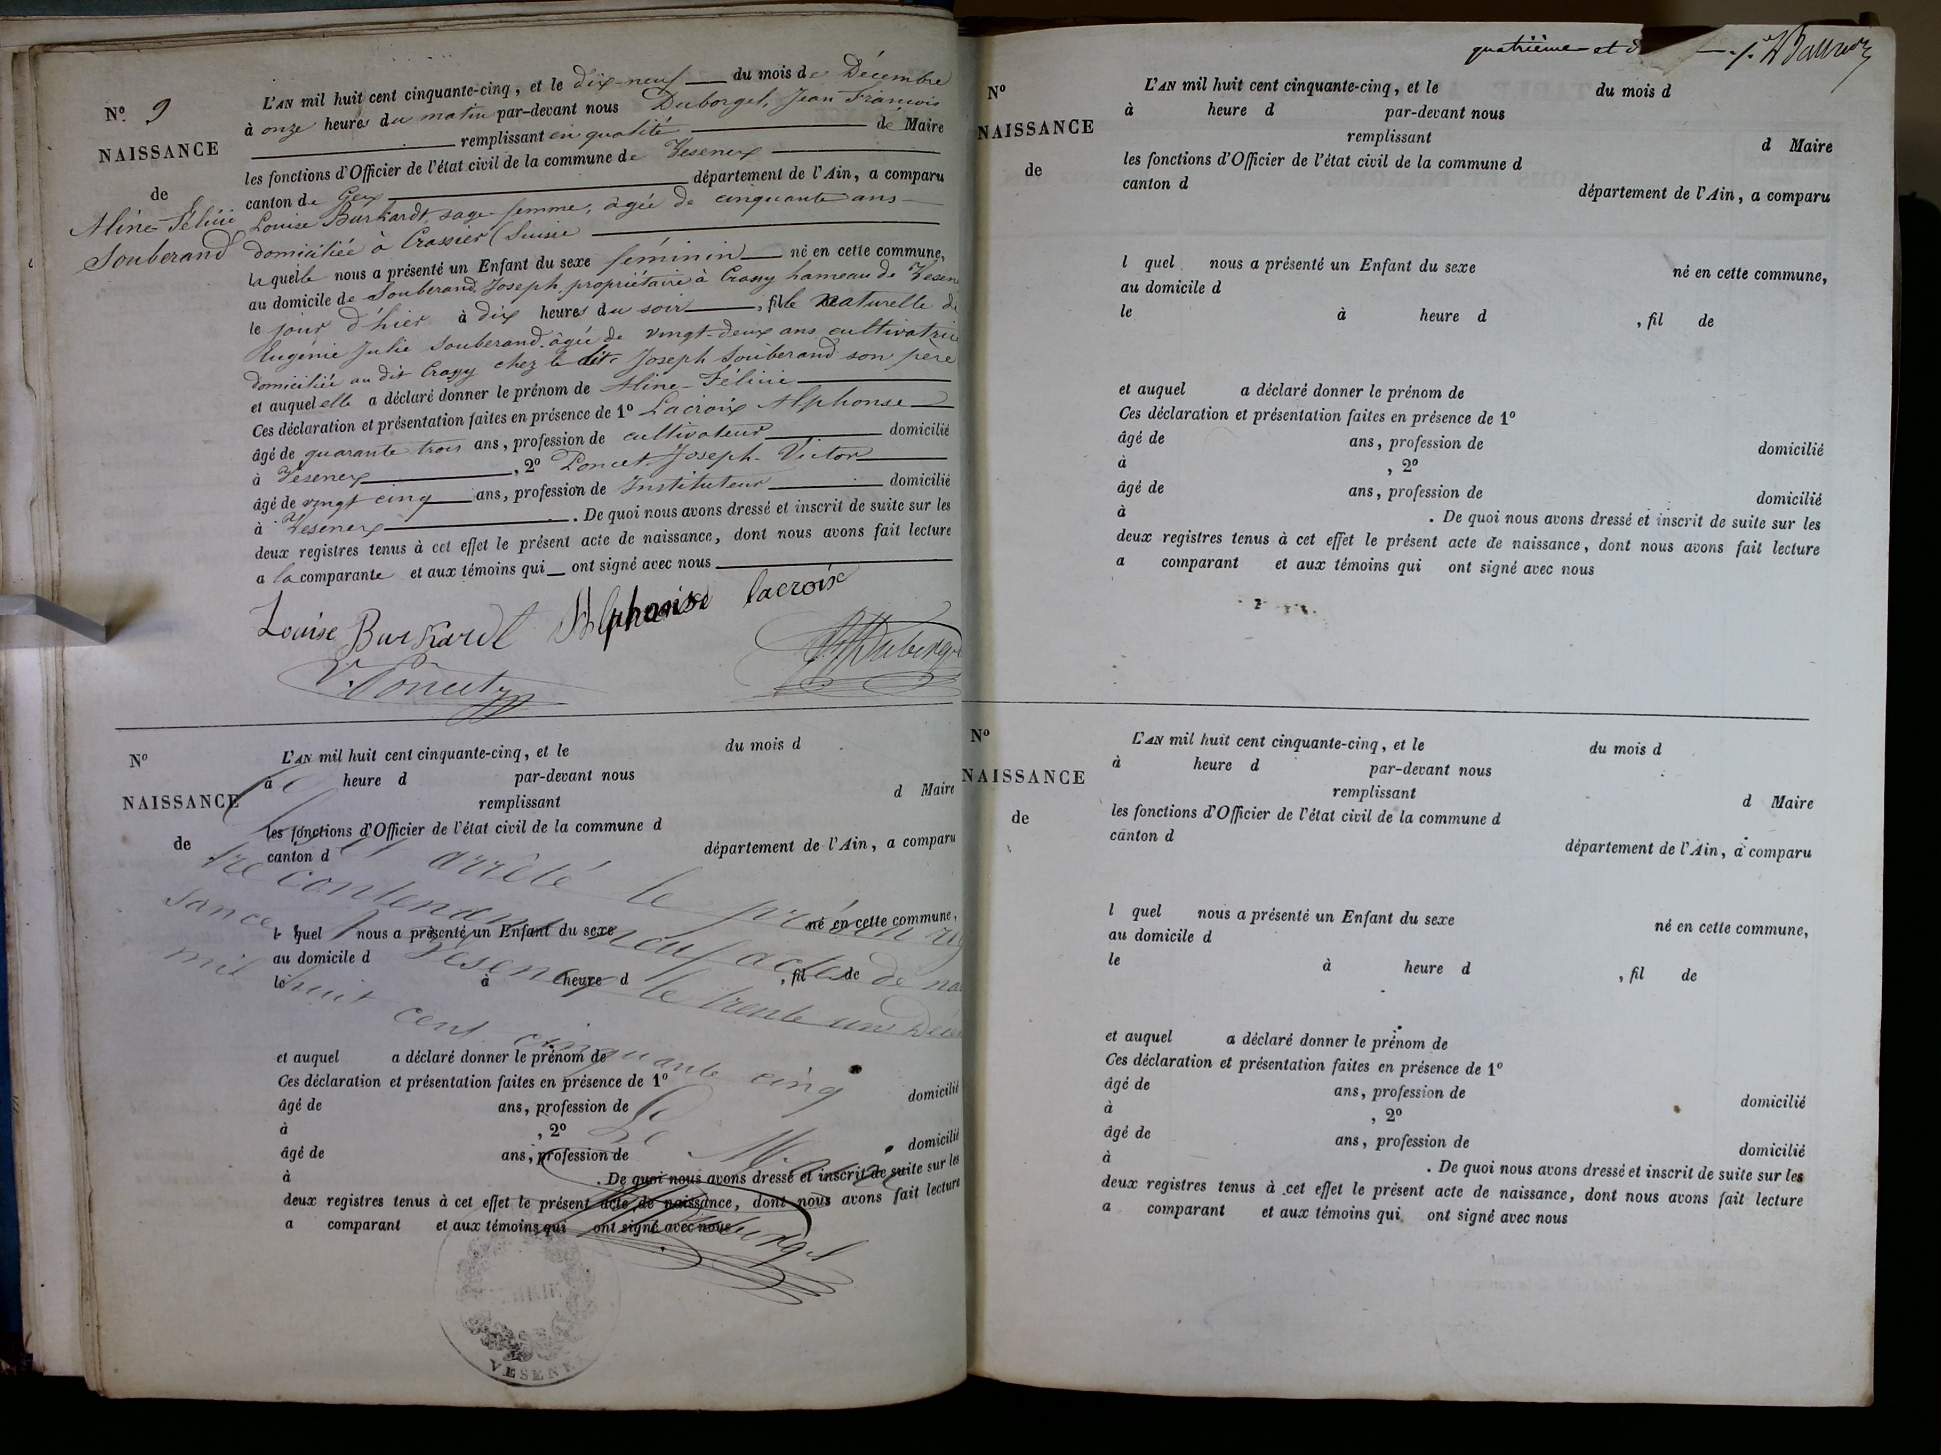 N° 9
NAISSANCE
de
Aline-Félicie
Souberand
L'AN mil huit cent cinquante-cinq, et le dix-neuf du mois de Décembre
à onze heures du matin par-devant nous Duborgel, Jean François
remplissant en qualité de Maire
les fonctions d'Officier de l'état civil de la commune de Vesenex
canton de Gex département de l'Ain, a comparu
Louise Burkardt, sage femme, âgée de cinquante ans
domiciliée à Crassier (Suisse
laquelle nous a présenté un Enfant du sexe féminin né en cette commune,
au domicile de Souberand Joseph propriétaire à Crassy hameau de Vesen
le jour d'hier à dix heures du soir, fille naturelle de
Eugénie Julie Souberand âgée de vingt-deux ans cultivatrice
domiciliée au dit Crassy chez le dit Joseph Souberand son père
et auquel elle a déclaré donner le prénom de Aline-Félicie
Ces déclaration et présentation faites en présence de 1° Lacroix Alphonse
âgé de quarante trois ans, profession de cultivateur domicilié
à Vesenex, 2° Poncet Joseph-Victor
âgé de vingt cinq ans, profession de Instituteur domicilié
à Vesenex. De quoi nous avons dressé et inscrit de suite sur les
deux registres tenus à cet effet le présent acte de naissance, dont nous avons fait lecture
a la comparante et aux témoins qui ont signé avec nous
Louise Burkardt Alphonse lacroix
V. Poncet Duborgel
N°
NAISSANCE
de
L'AN mil huit cent cinquante-cinq, et le du mois d
à heure d par-devant nous
remplissant d Maire
les fonctions d'Officier de l'état civil de la commune d
canton d département de l'Ain, a comparu
arrêté le présen
tre contenant neuf actes de nais
sance
l quel nous a présenté un Enfant du sexe né en cette commune,
au domicile d
Vesenex le trente un Déce
le à heure d, fil de
mil huit cent cinquante cinq
et auquel a déclaré donner le prénom de
Ces déclaration et présentation faites en présence de 1°
âgé de ans, profession de domicilié
à, 2°
Le Maire
âgé de ans, profession de domicilié
à. De quoi nous avons dressé et inscrit de suite sur les
deux registres tenus à cet effet le présent acte de naissance, dont nous avons fait lecture
a comparant et aux témoins qui ont signé avec nous
Duborgel
MAIRIE
VESENEX
quatrième et d
N°
NAISSANCE
de
L'AN mil huit cent cinquante-cinq, et le du mois d
à heure d par-devant nous
remplissant d Maire
les fonctions d'Officier de l'état civil de la commune d
canton d département de l'Ain, a comparu
l quel nous a présenté un Enfant du sexe né en cette commune,
au domicile d
le à heure d, fil de
et auquel a déclaré donner le prénom de
Ces déclaration et présentation faites en présence de 1°
âgé de ans, profession de domicilié
à, 2°
âgé de ans, profession de domicilié
à. De quoi nous avons dressé et inscrit de suite sur les
deux registres tenus à cet effet le présent acte de naissance, dont nous avons fait lecture
a comparant et aux témoins qui ont signé avec nous
N°
NAISSANCE
de
L'AN mil huit cent cinquante-cinq, et le du mois d
à heure d par-devant nous
remplissant d Maire
les fonctions d'Officier de l'état civil de la commune d
canton d département de l'Ain, a comparu
l quel nous a présenté un Enfant du sexe né en cette commune,
au domicile d
le à heure d, fil de
et auquel a déclaré donner le prénom de
Ces déclaration et présentation faites en présence de 1°
âgé de ans, profession de domicilié
à, 2°
âgé de ans, profession de domicilié
à. De quoi nous avons dressé et inscrit de suite sur les
deux registres tenus à cet effet le présent acte de naissance, dont nous avons fait lecture
a comparant et aux témoins qui ont signé avec nous